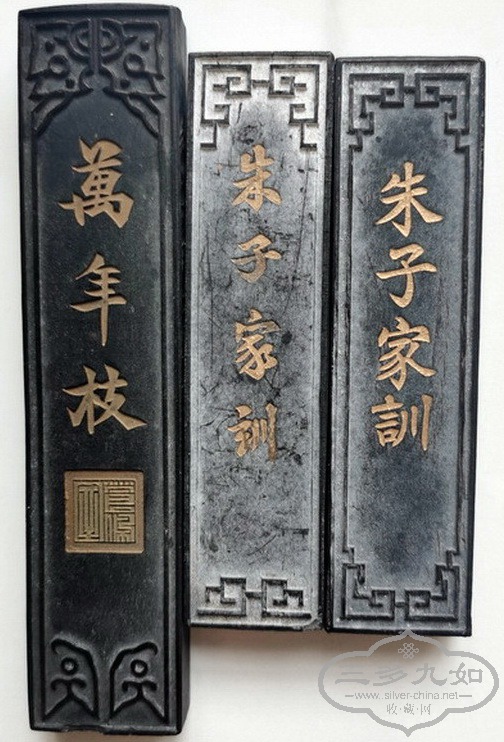 萬年枝
朱子家訓
朱子家訓
三多九如
www.silver-china.net
收藏网